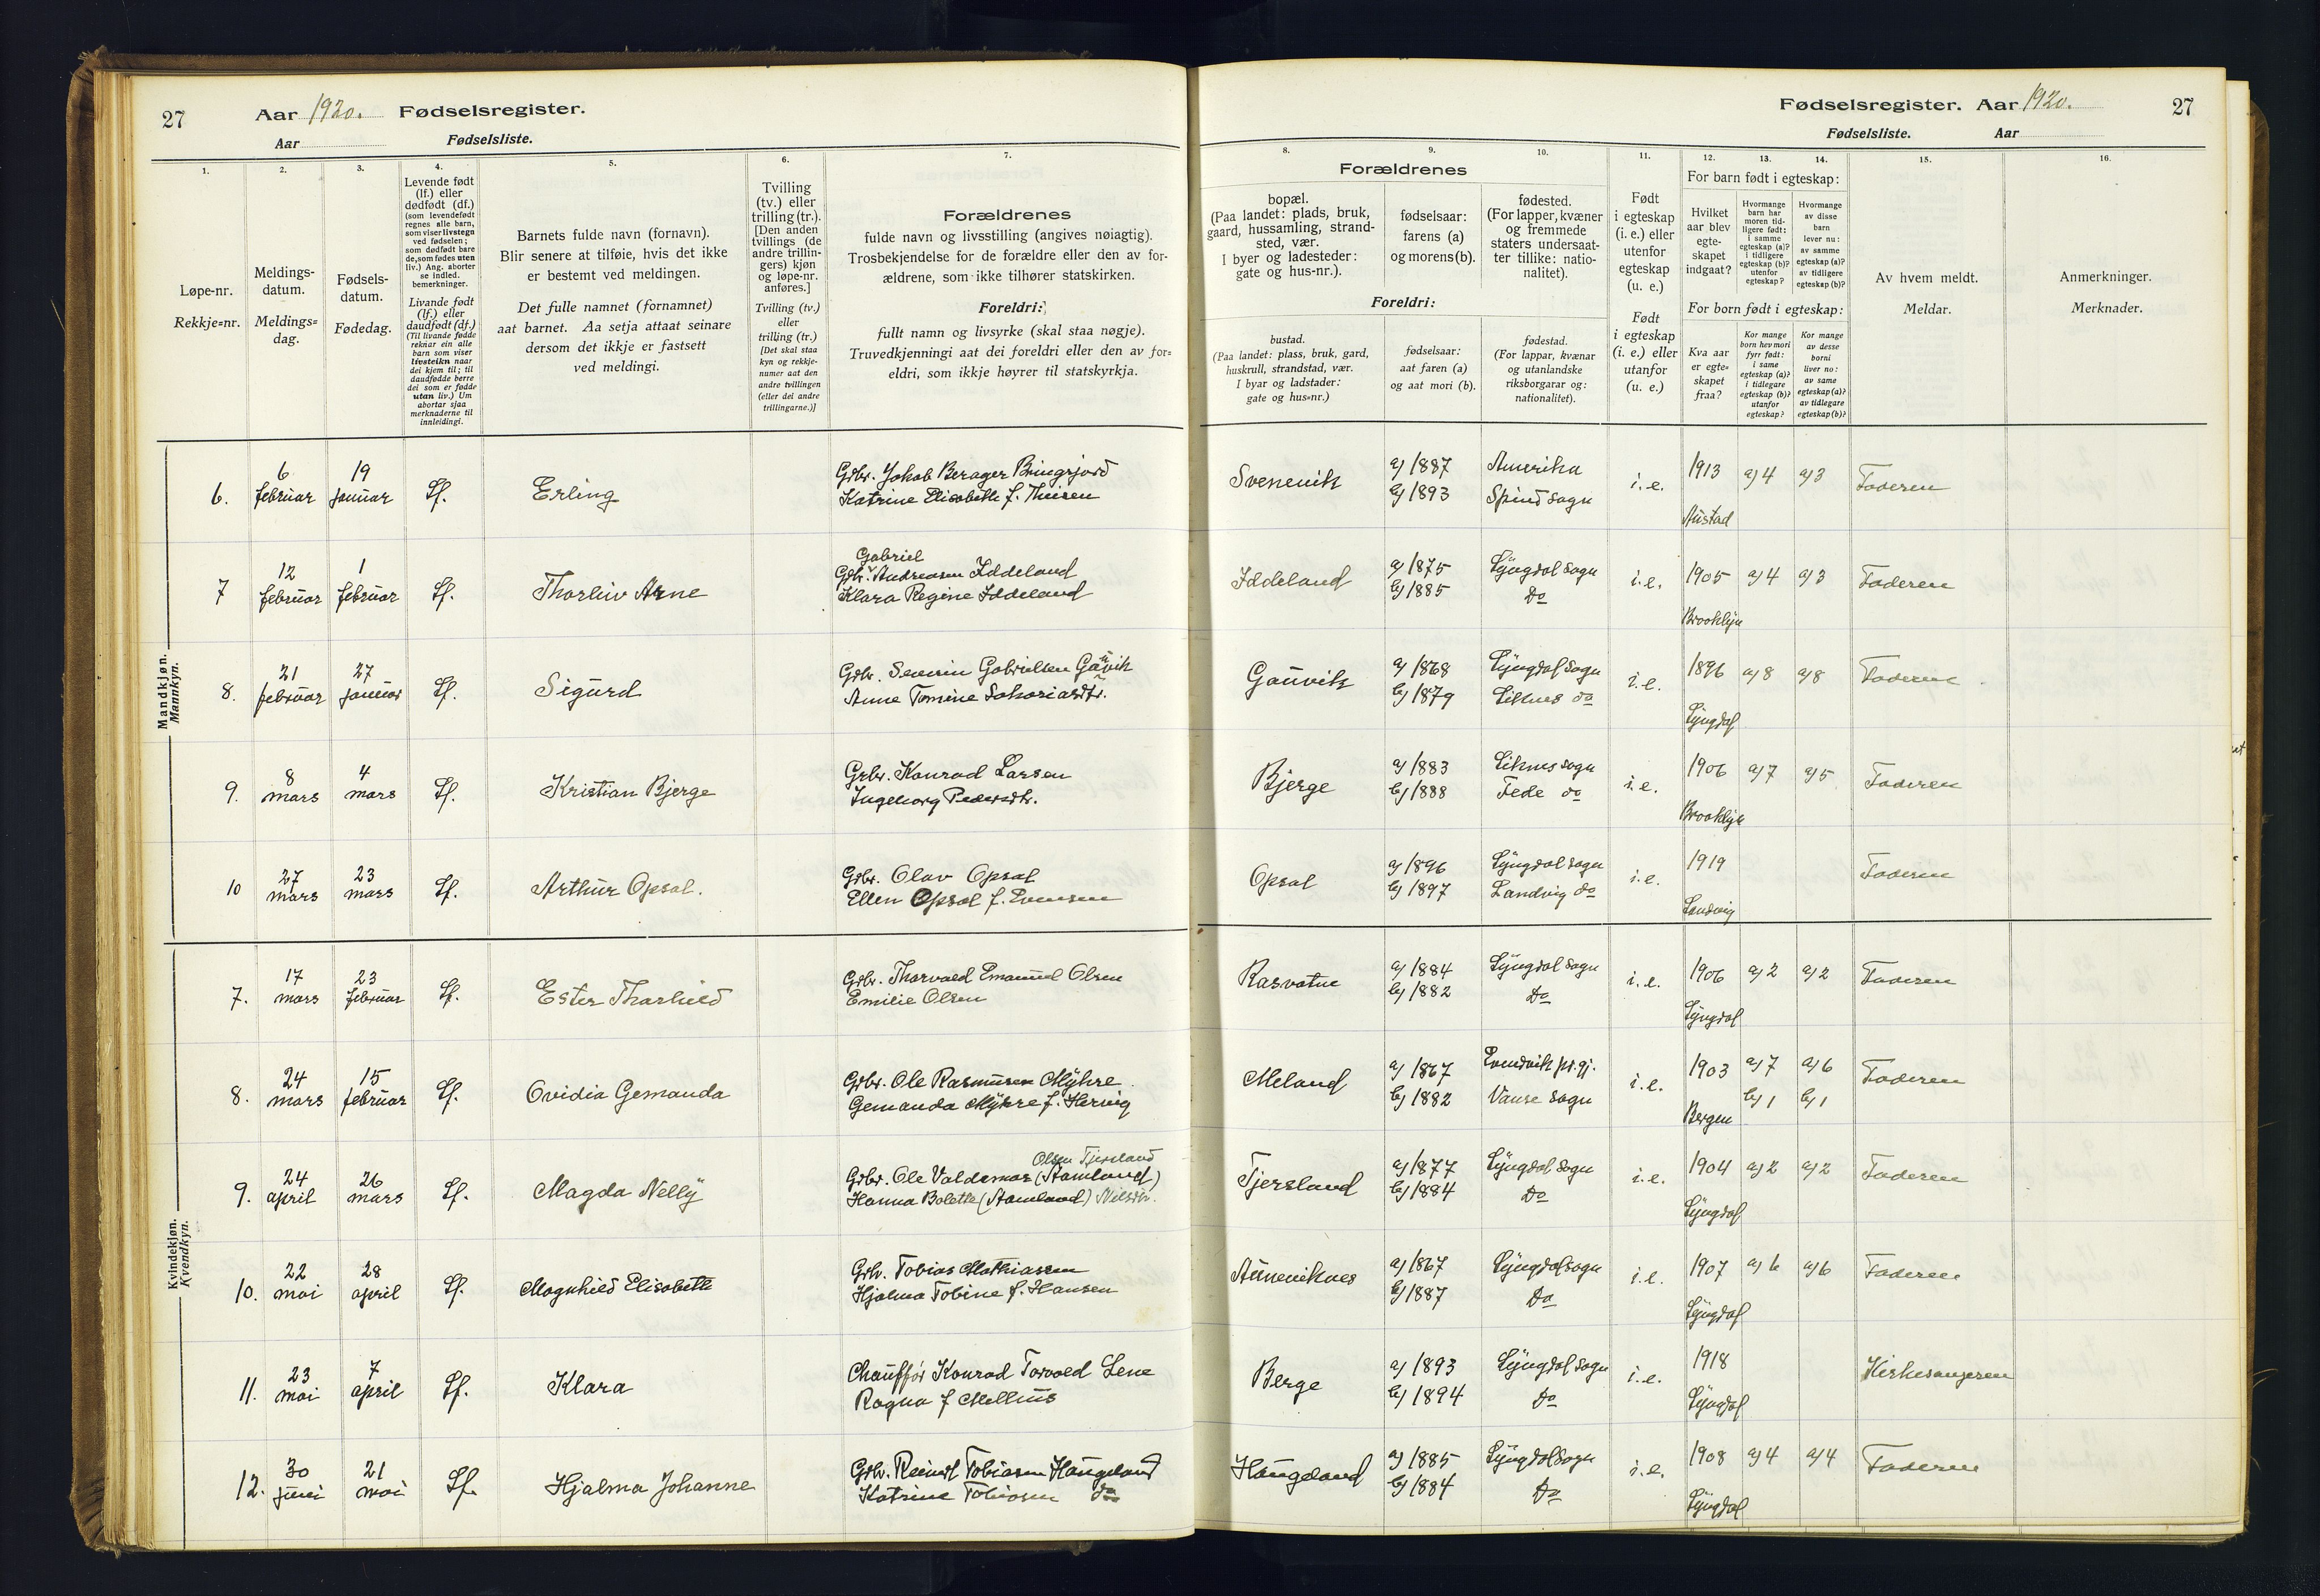 27
Aar 1920. Fødselsregister.
Aar Fødselsliste.
Fødselsregister. Aar 1920.
27
Fødselsliste. Aar
1.
Løpe-nr.
Rekkje=nr.
2.
Meldings-
datum.
Meldings=
dag.
3.
Fødsels-
datum.
Fødedag.
4.
Levende født
(lf.) eller
dødfødt (df.)
(som levendefødt
regnes alle barn,
som viser livstegn
ved fødselen;
som dødfødt bare
de, som fødes uten
liv.) Ang. aborter
se indled.
bemerkninger.
Livande født
(lf.) eller
daudfødt (df.)
(Til livande fødde
reknar ein alle
barn som viser
livsteikn naar
dei kjem til; til
daudfødde berre
dei som er fødde
utan liv.) Um
abortar sjaa
merknaderne til
innleidingi.
5.
Barnets fulde navn (fornavn).
Blir senere at tilføie, hvis det ikke
er bestemt ved meldingen.
Det fulle namnet (fornamnet)
aat barnet. Aa setja attaat seinare
dersom det ikkje er fastsett
ved meldingi.
6.
Tvilling
(tv.) eller
trilling (tr.).
[Den anden
tvillings (de
andre trillin-
gers) kjøn
og løpe-nr.
anføres.]
Tvilling (tv.)
eller
trilling (tr.)
[Det skal staa
kyn og rekkje-
numer aat den
andre tvillingen
(eller dei andre
trillingarne.)]
7.
Forældrenes
fulde navn og livsstilling (angives nøiagtig).
Trosbekjendelse for de forældre eller den av for-
ældrene, som ikke tilhører statskirken.
Foreldri:
fullt namn og livsyrke (skal staa nøgje).
Truvedkjenningi aat dei foreldri eller den av for=
eldri, som ikkje høyrer til statskyrkja.
Forældrenes
8.
bopæl.
(Paa landet: plads, bruk,
gaard, hussamling, strand-
sted, vær.
I byer og ladesteder:
gate og hus-nr.).
9.
fødselsaar:
farens (a)
og morens (b).
10.
fødested.
(For lapper, kvæner
og fremmede
staters undersaat-
ter tillike: natio-
nalitet).
Foreldri:
bustad.
(Paa landet: plass, bruk, gard,
huskrull, strandstad, vær.
I byar og ladstader:
gate og hus=nr.)
fødselsaar:
aat faren (a)
og aat mori (b).
fødestad.
(For lappar, kvænar
og utanlandske
riksborgarar og:
nationalitet).
11.
Født
i egteskap
(i. e.) eller
utenfor
egteskap
(u. e.)
Født
i egteskap
(i. e.) eller
utanfor
(u. e.)
12. 13. 14.
For barn født i egteskap:
Hvilket
aar blev
egte-
skapet
indgaat?
Hvormange
barn har
moren tid-
ligere født:
i samme
egteskap (a)?
i tidligere
egteskap (b)?
utenfor
egteskap?
Hvormange
av disse
barn
lever nu:
av samme
egteskap (a)?
av tidligere
egteskap (b)?
For born født i egteskap:
Kva aar
er egte=
skapet
fraa?
Kor mange
born hev mori
fyrr født:
i same
egteskap (a)?
i tidlegare
egteskap (b)?
utanfor
egteskap?
Kor mange
av desse
borni
liver no:
av same
egteskap (a)?
av tidlegare
egteskap (b)?
15.
Av hvem meldt.
Meldar.
16.
Anmerkninger.
Merknader.
Mandkjøn.
Mannkyn.
6. 6 februar 19 januar Lf. Erling
Gdbr. Jakob Berager Bringsjord
Katrine Elisabeth f. Thusen
Svenevik a) 1887 b) 1893 Amerika Spind sogn i. e. 1913 Austad a) 4 a) 3 Faderen
7 12 februar 1 februar Lf. Thorleiv Arne
Gabriel
Gdbr. Andreasen Iddeland
Klara Regine Iddeland
Iddeland a) 1875 b) 1885 Lyngdal sogn Do i. e. 1905 Brooklyn a) 4 a) 3 Faderen
8. 21 februar 27 januar Lf. Sigurd
Gdbr. Severin Gabrielsen Gauvik
Anne Tomine Sakariasdtr.
Gauvik a) 1868 b) 1879 Lyngdal sogn Liknes do i. e. 1896 Lyngdal a) 8 a) 8 Faderen
9. 8 mars 4 mars Lf. Kristian Bjerge
Gdbr. Konrad Larsen
Ingeborg Pedersdtr.
Bjerge a) 1883 b) 1888 Liknes sogn Fede do i. e. 1906 Brooklyn a) 7 a) 5 Faderen
10 27 mars 23 mars Lf. Arthur Opsal.
Gdbr. Olav Opsal
Ellen Opsal f. Evensen
Opsal a) 1896 b) 1897 Lyngdal sogn Landvig do i. e. 1919 Landvig Faderen
Kvindekjøn.
Kvendkyn.
7. 17 mars 23 februar Lf. Ester Thorhild
Gdbr. Thorvald Emanuel Olsen
Emilie Olsen
Rasvatne a) 1884 b) 1882 Lyngdal sogn Do i. e. 1906 Lyngdal a) 2 a) 2 Faderen
8. 24 mars 15 februar Lf. Ovidia Gemanda
Gdbr. Ole Rasmusen Myhre
Gemanda Myhre f. Hervig
Meland a) 1867 b) 1882 Evindvik pr.gj. Vanse sogn i. e. 1903 Bergen a) 7 b) 1 a) 6 b) 1 Faderen
9. 24 april 26 mars Lf. Magda Nelly
Olsen Tjersland
Gdbr. Ole Valdemar (Stamland)
Hanna Bolette (Stamland) Nilsdtr.
Tjersland a) 1877 b) 1884 Lyngdal sogn Do i. e. 1904 Lyngdal a) 2 a) 2 Faderen
10. 22 mai 28 april Lf. Magnhild Elisabeth
Gdbr. Tobias Mathiassen
Hjalma Tobine f. Hansen
a) 1867 b) 1887 Lyngdal sogn Do i. e. 1907 Lyngdal a) 6 a) 6 Faderen
11. 23 mai 7 april Lf. Klara
Chauffør Konrad Torvald Lene
Ragna f Mellius
Berge a) 1893 b) 1894 Lyngdal sogn Do i. e. 1918 Lyngdal Kirkesangeren
12. 30 juni 21 mai Lf. Hjalma Johanne
Gdbr. Reindt Tobiasen Haugeland
Katrine Tobiasen do
Haugeland a) 1885 b) 1884 Lyngdal sogn Do i. e. 1908 Lyngdal a) 4 a) 4 Faderen